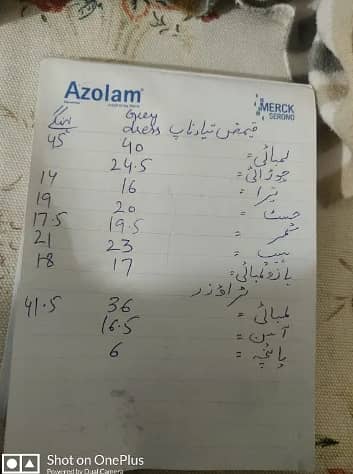 Azolam
MERCK
SERONO
Grey
قمیض تیار ناپ dress
لمبائی = 40 45
چوڑائی = 24.5
تیرا = 16 14
چیسٹ = 20 19
کمر = 19.5 17.5
ہیپ = 23 21
بازو لمبائی = 17 18
ٹراؤذر
لمبائی = 36 41.5
آسن = 16.5
پائنچہ = 6
Shot on OnePlus
Powered by Dual Camera